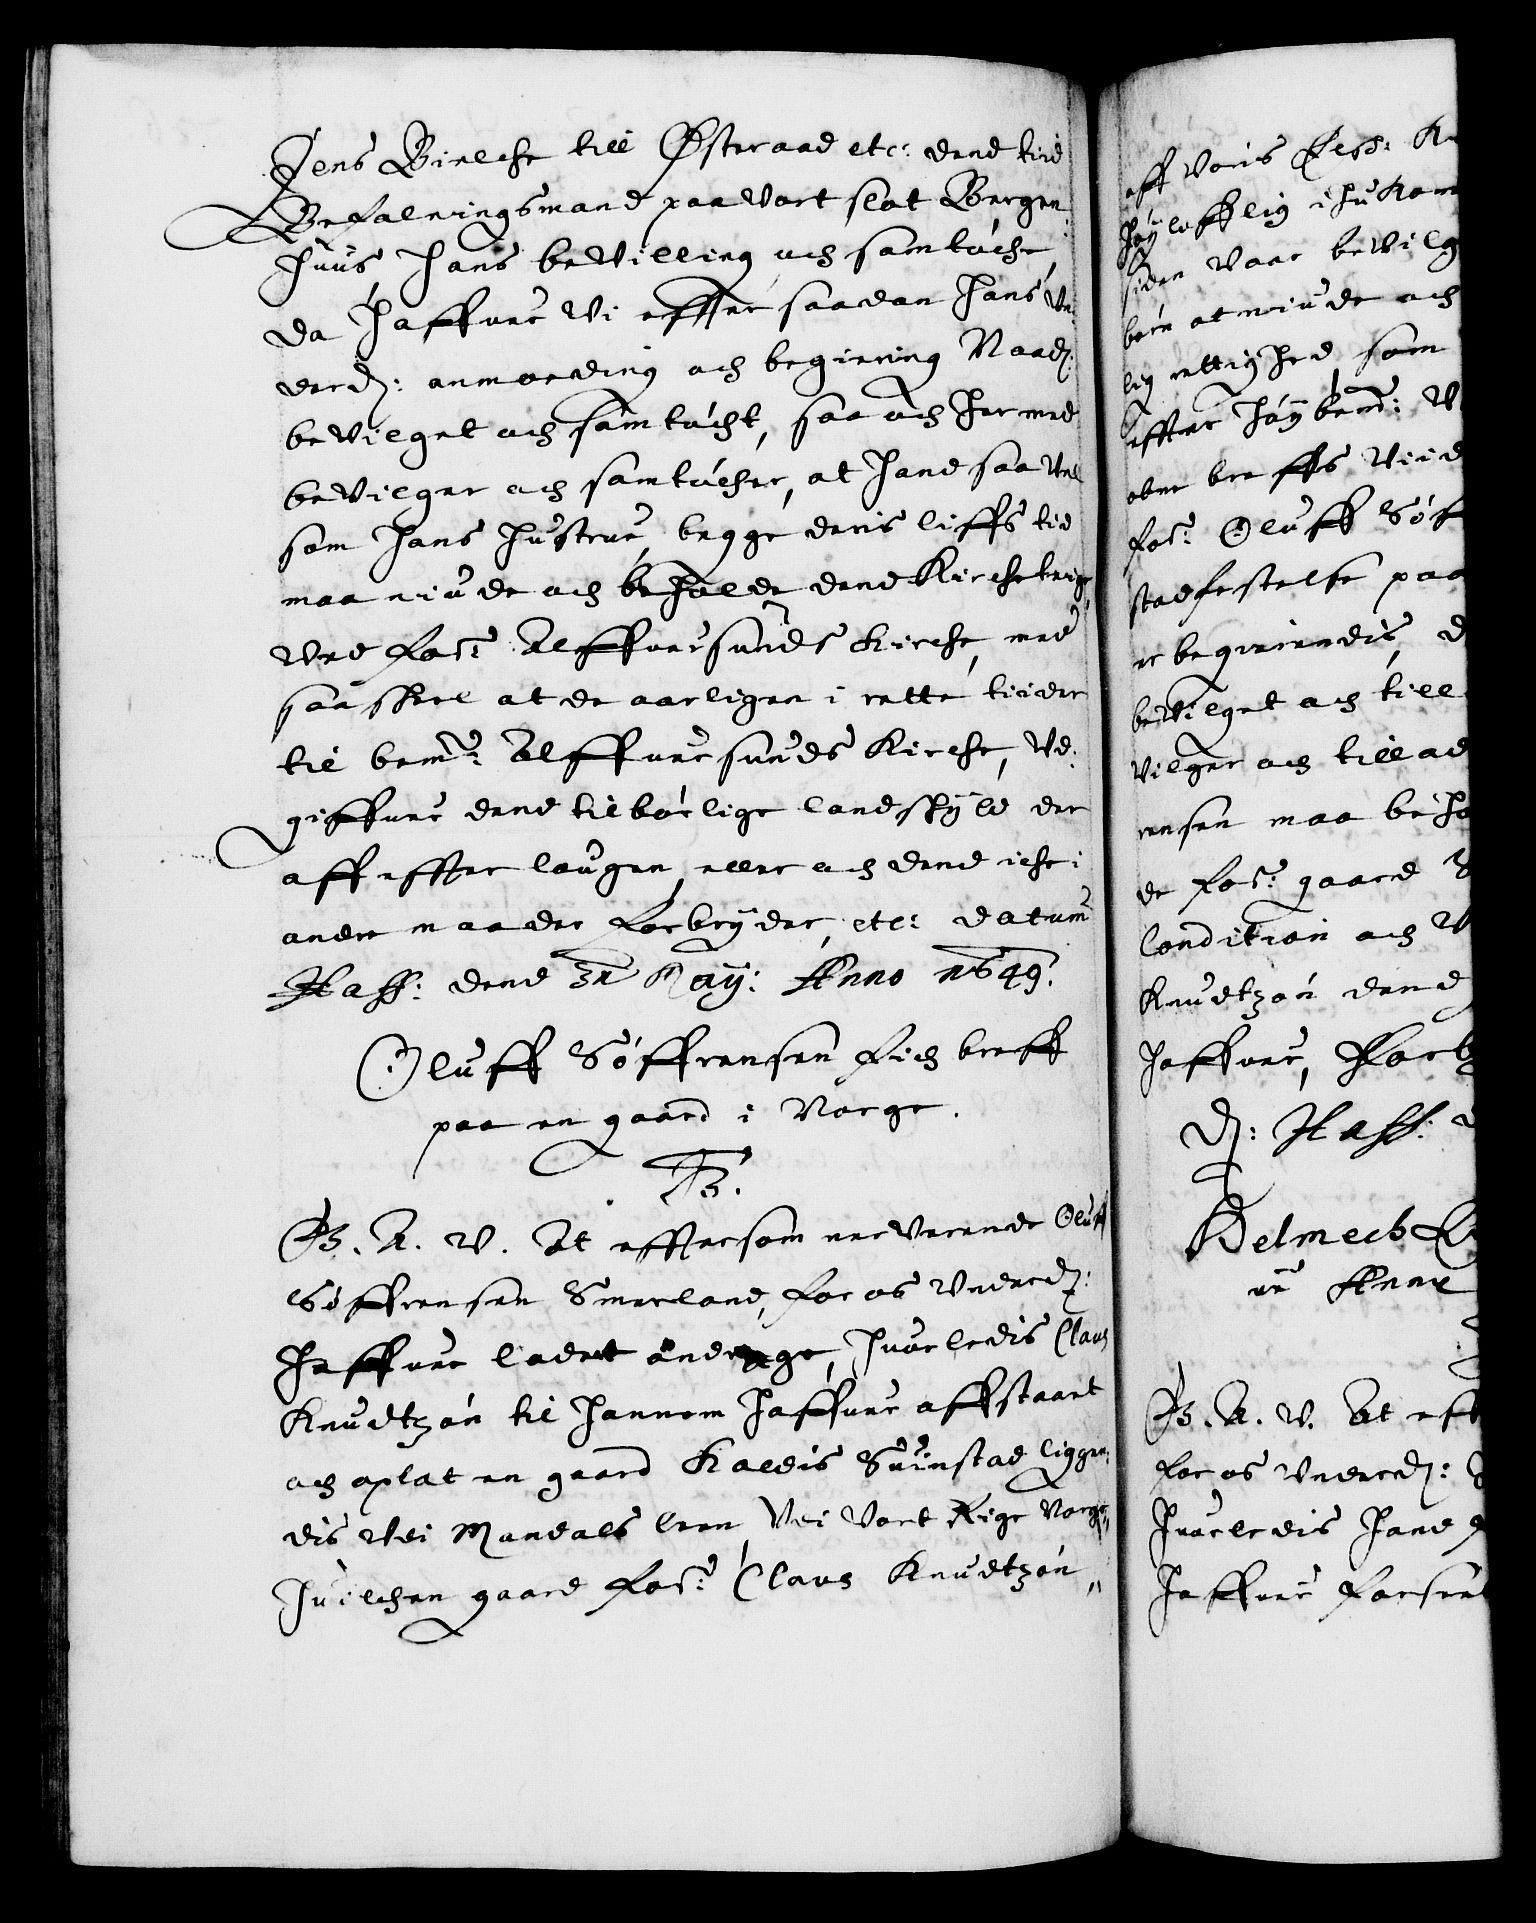 Jens Bielche till Østeraad etc: dend tiid
Befalningsmand paa Vort slot Bergen
Huus Hans beVilling och samtøche,
da Haffuer Vi effter saadan Hans Un
derd: anmoeding och begiering Naad:
beVilget och samtøcht, saa och Her med
beVilger och samtøcher, at Hand saa Vel
som Hans Hustrue, begge deris liffs tid
maa niude och beholde dend Kirche
Ved forˢ: Alffuersunds Kirche, med
saa skeel at de aarligen i rette tiider
til bemᵗᵉ: Alffuersunds Kirche, Ud
giffuer dend tilbørlige landskyld der
aff effter lougen, eller och dend iche i
andre maader forbryder, etc: datum
Haff: dend 31 Maij: Anno 1649.
Oluff Søffrensen fich breff
paa en gaard i Norge.
F3.
G. A. V. At effttersom nerverende Oluff
Søffrensen Smerland, for os Underd:
Haffuer ladet andrage, Huorledis Claus
Knudtzøn til Hannem Haffuer affstaaet
och oplat en gaard Kaldis Suinstad liggen
dis Udi Mandals leen Udi Vort Rige Norge
Huilchen gaard forˢ: Claus Knudtzøn
aff Voris Elsk: K
Høylofflig ihukom
siden Vaar bevilg
ben at niude och
lig rettighed som
effter Høybemᵗᵉ: V
obne breffs Viid
forˢ: Oluff Søf
stadfestelse paa
er begierendis, d
bevilget och till
vilger och tillad
rensen maa beho
de forˢ: gaard
Condition och V
Knudtzøn dend
Haffuer, Forb
d: Haff:
Helmech
Anne
G. A. V. At eff
for os Underd:
Huorledis Hand
Haffuer forsen